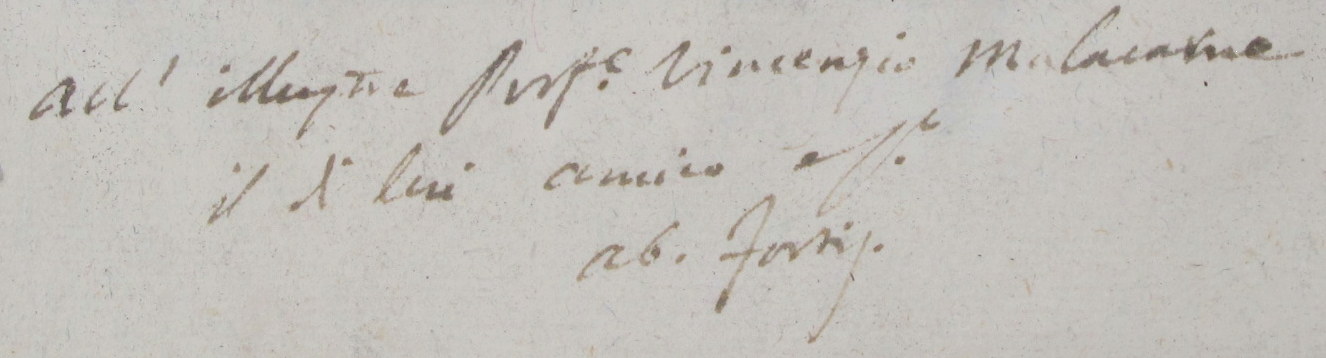 all' illustre Prof.e Vincenzio Malacarne
il di lui amico
ab. Fortis.